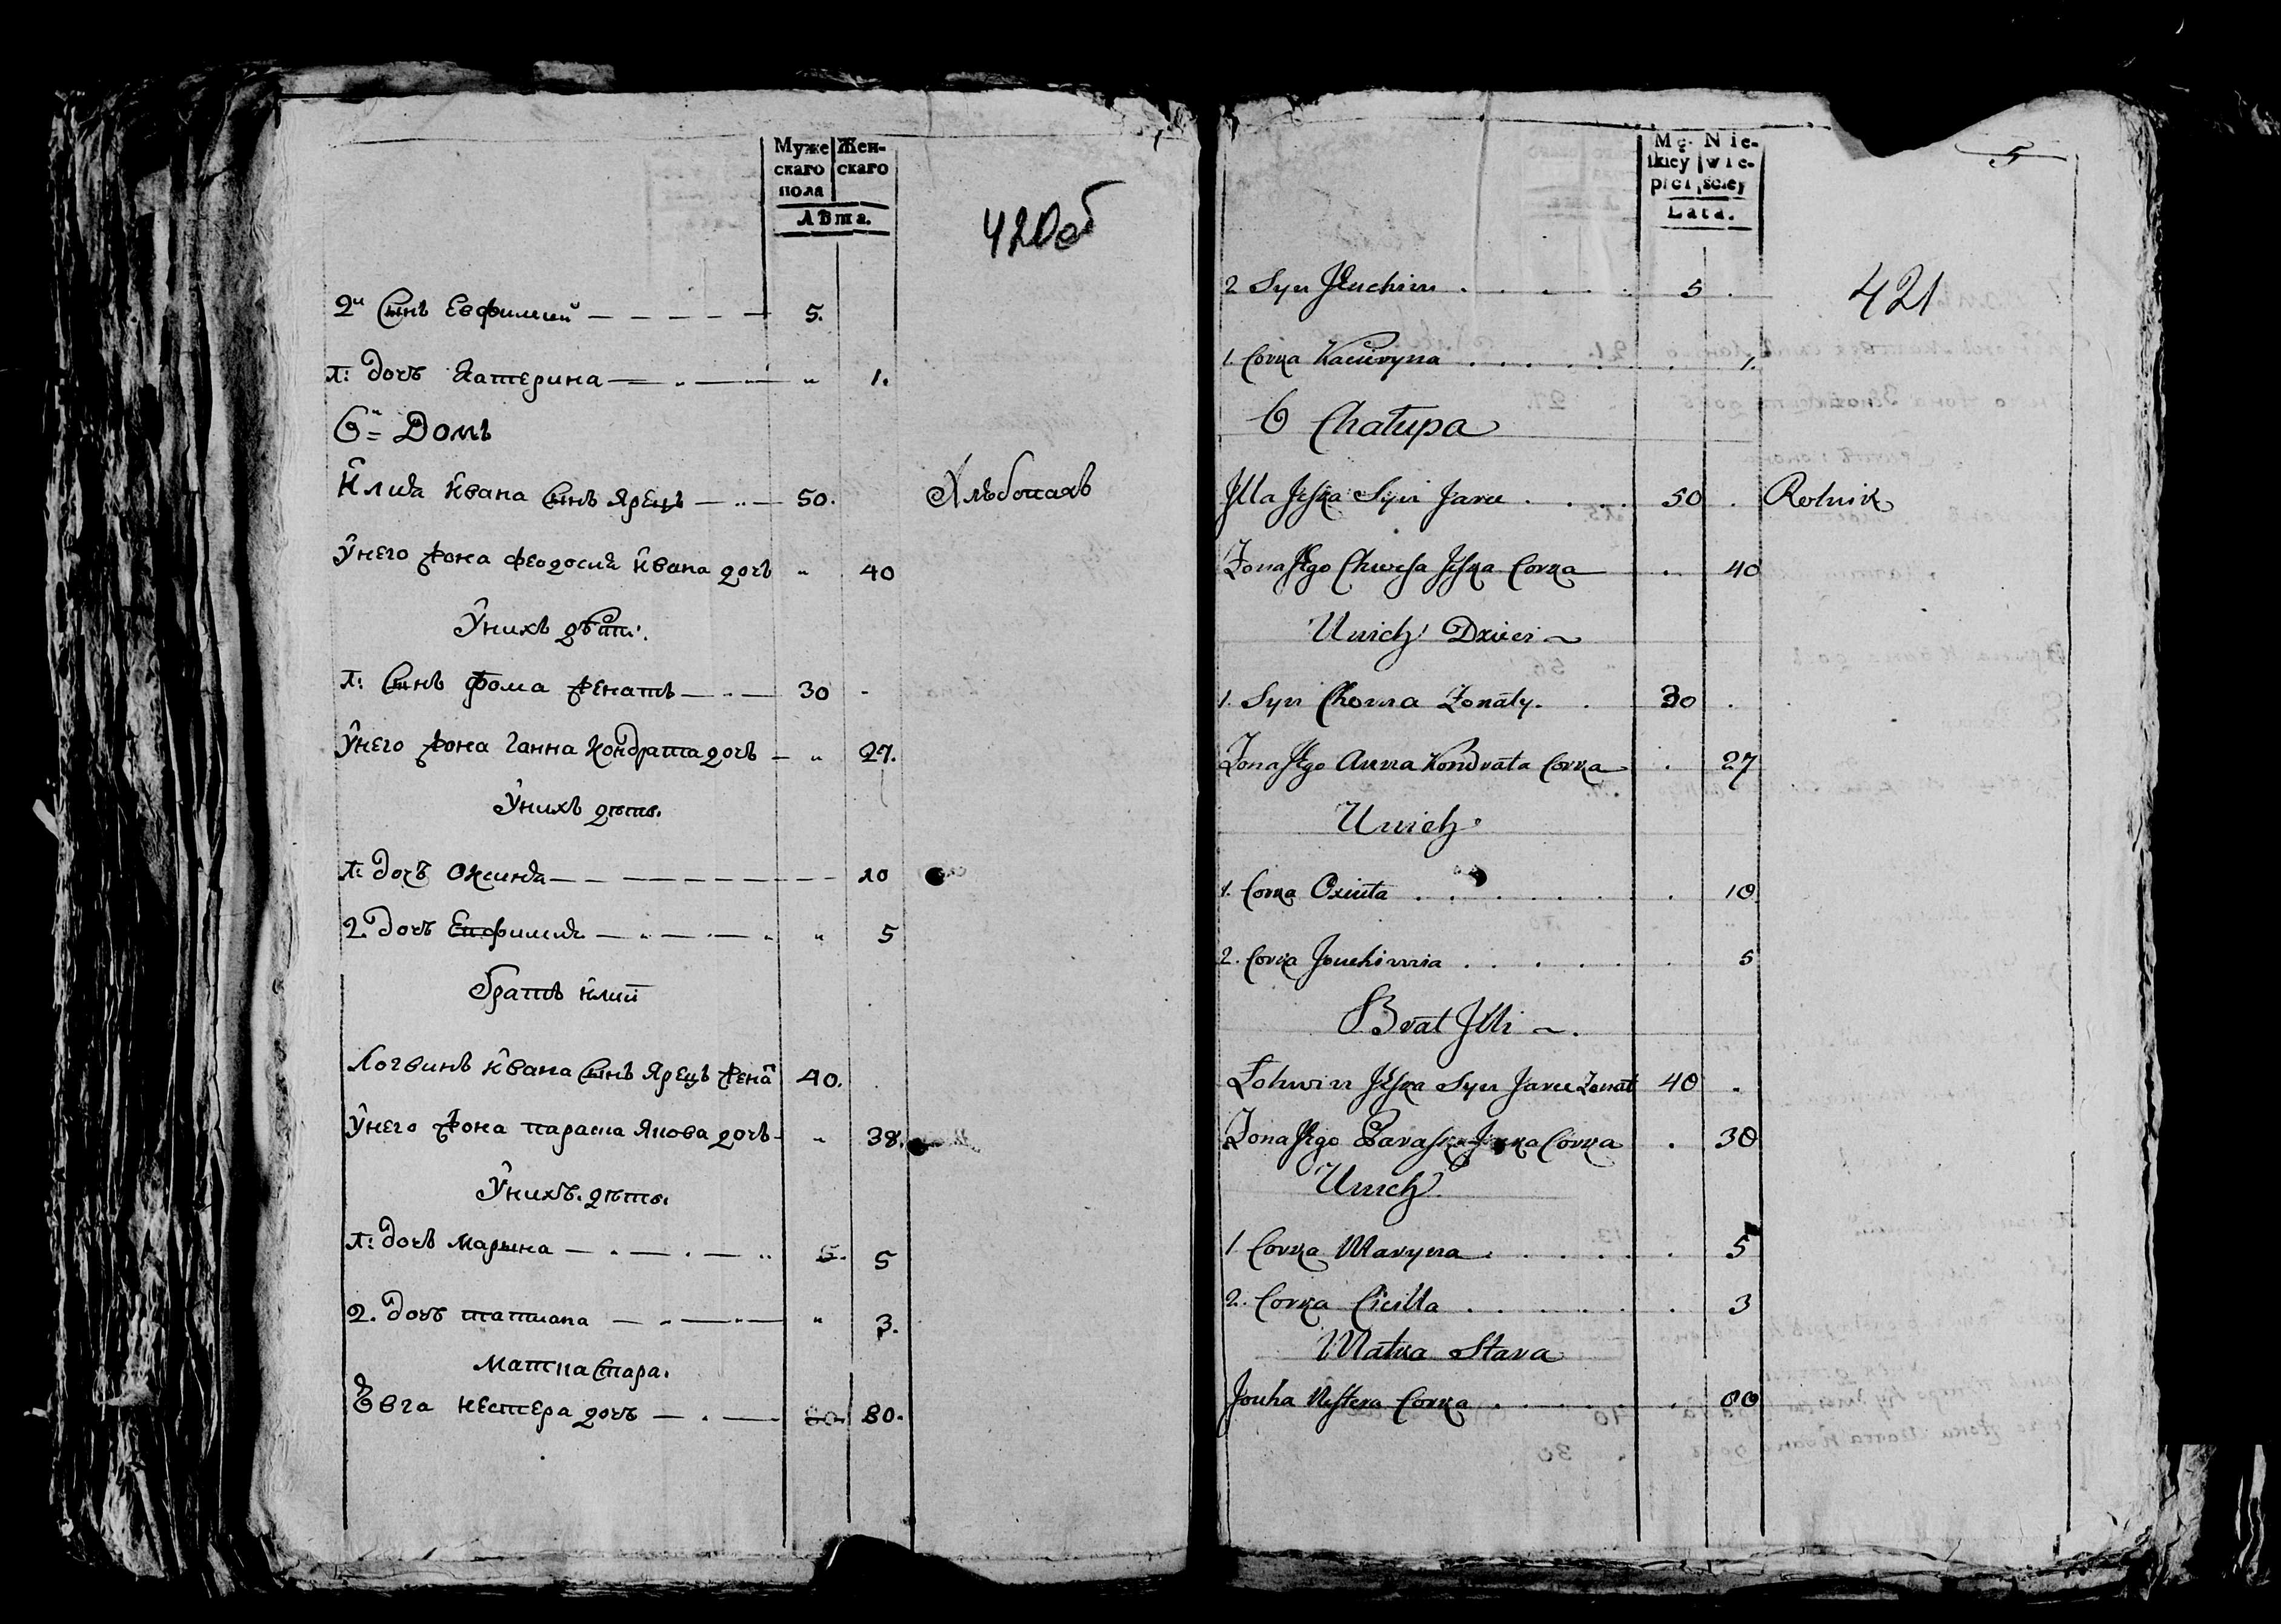 Муже Жен-
скаго скаго
пола
Лѣта.
420об
2й Сынъ Евфимий 5.
1: дочъ Катерина 1.
6й Домъ
Илия Ивана Сынъ Ярецъ 50. Хлѣбопахъ
Унего жона Феодосия Ивана дочъ 40
Унихъ дѣти.
1: Сынъ Фома женатъ 30
Унего жона Ганна Кондрата дочъ 27.
Унихъ дѣти.
1: дочъ Оксиня 10
2. дочъ Евфимия 5
братъ Илии
Логвинъ Ивана Сынъ Ярецъ женат 40.
Унего жона параска Якова дочъ 38.
Унихъ. дѣти.
1: дочъ Марына 5. 5
2. дочъ татиана 3.
матка Стара.
Евга Нестера дочъ 80. 80.
Mę- Nie-
ſkiey wie-
płci ściey
Lata.
5
421
2 Syn Jeuchim 5
1. Corka Kacieryna 1.
6 Chałupa
Jlla Jeſka Syn Jarec 50 Rolnik
Zona Jego Chwesa Jeſka Corka 40
Unich Dzieci
1. Syn Choma Zonaty. 30
Zona Jego Anna Kondrata Corka 27
Unich
1. Corka Oxinia 10
2. Corka Jouchimia 5
Brat Jlli
Łohwin Jeſka Syn Jarec Zonat 40
Zona Jego Paraſka Corka 38
Unich
1 Corka Maryna 5
2. Corka Cicilla 3
Matka Stara
Jouha Neſtera Corka 80